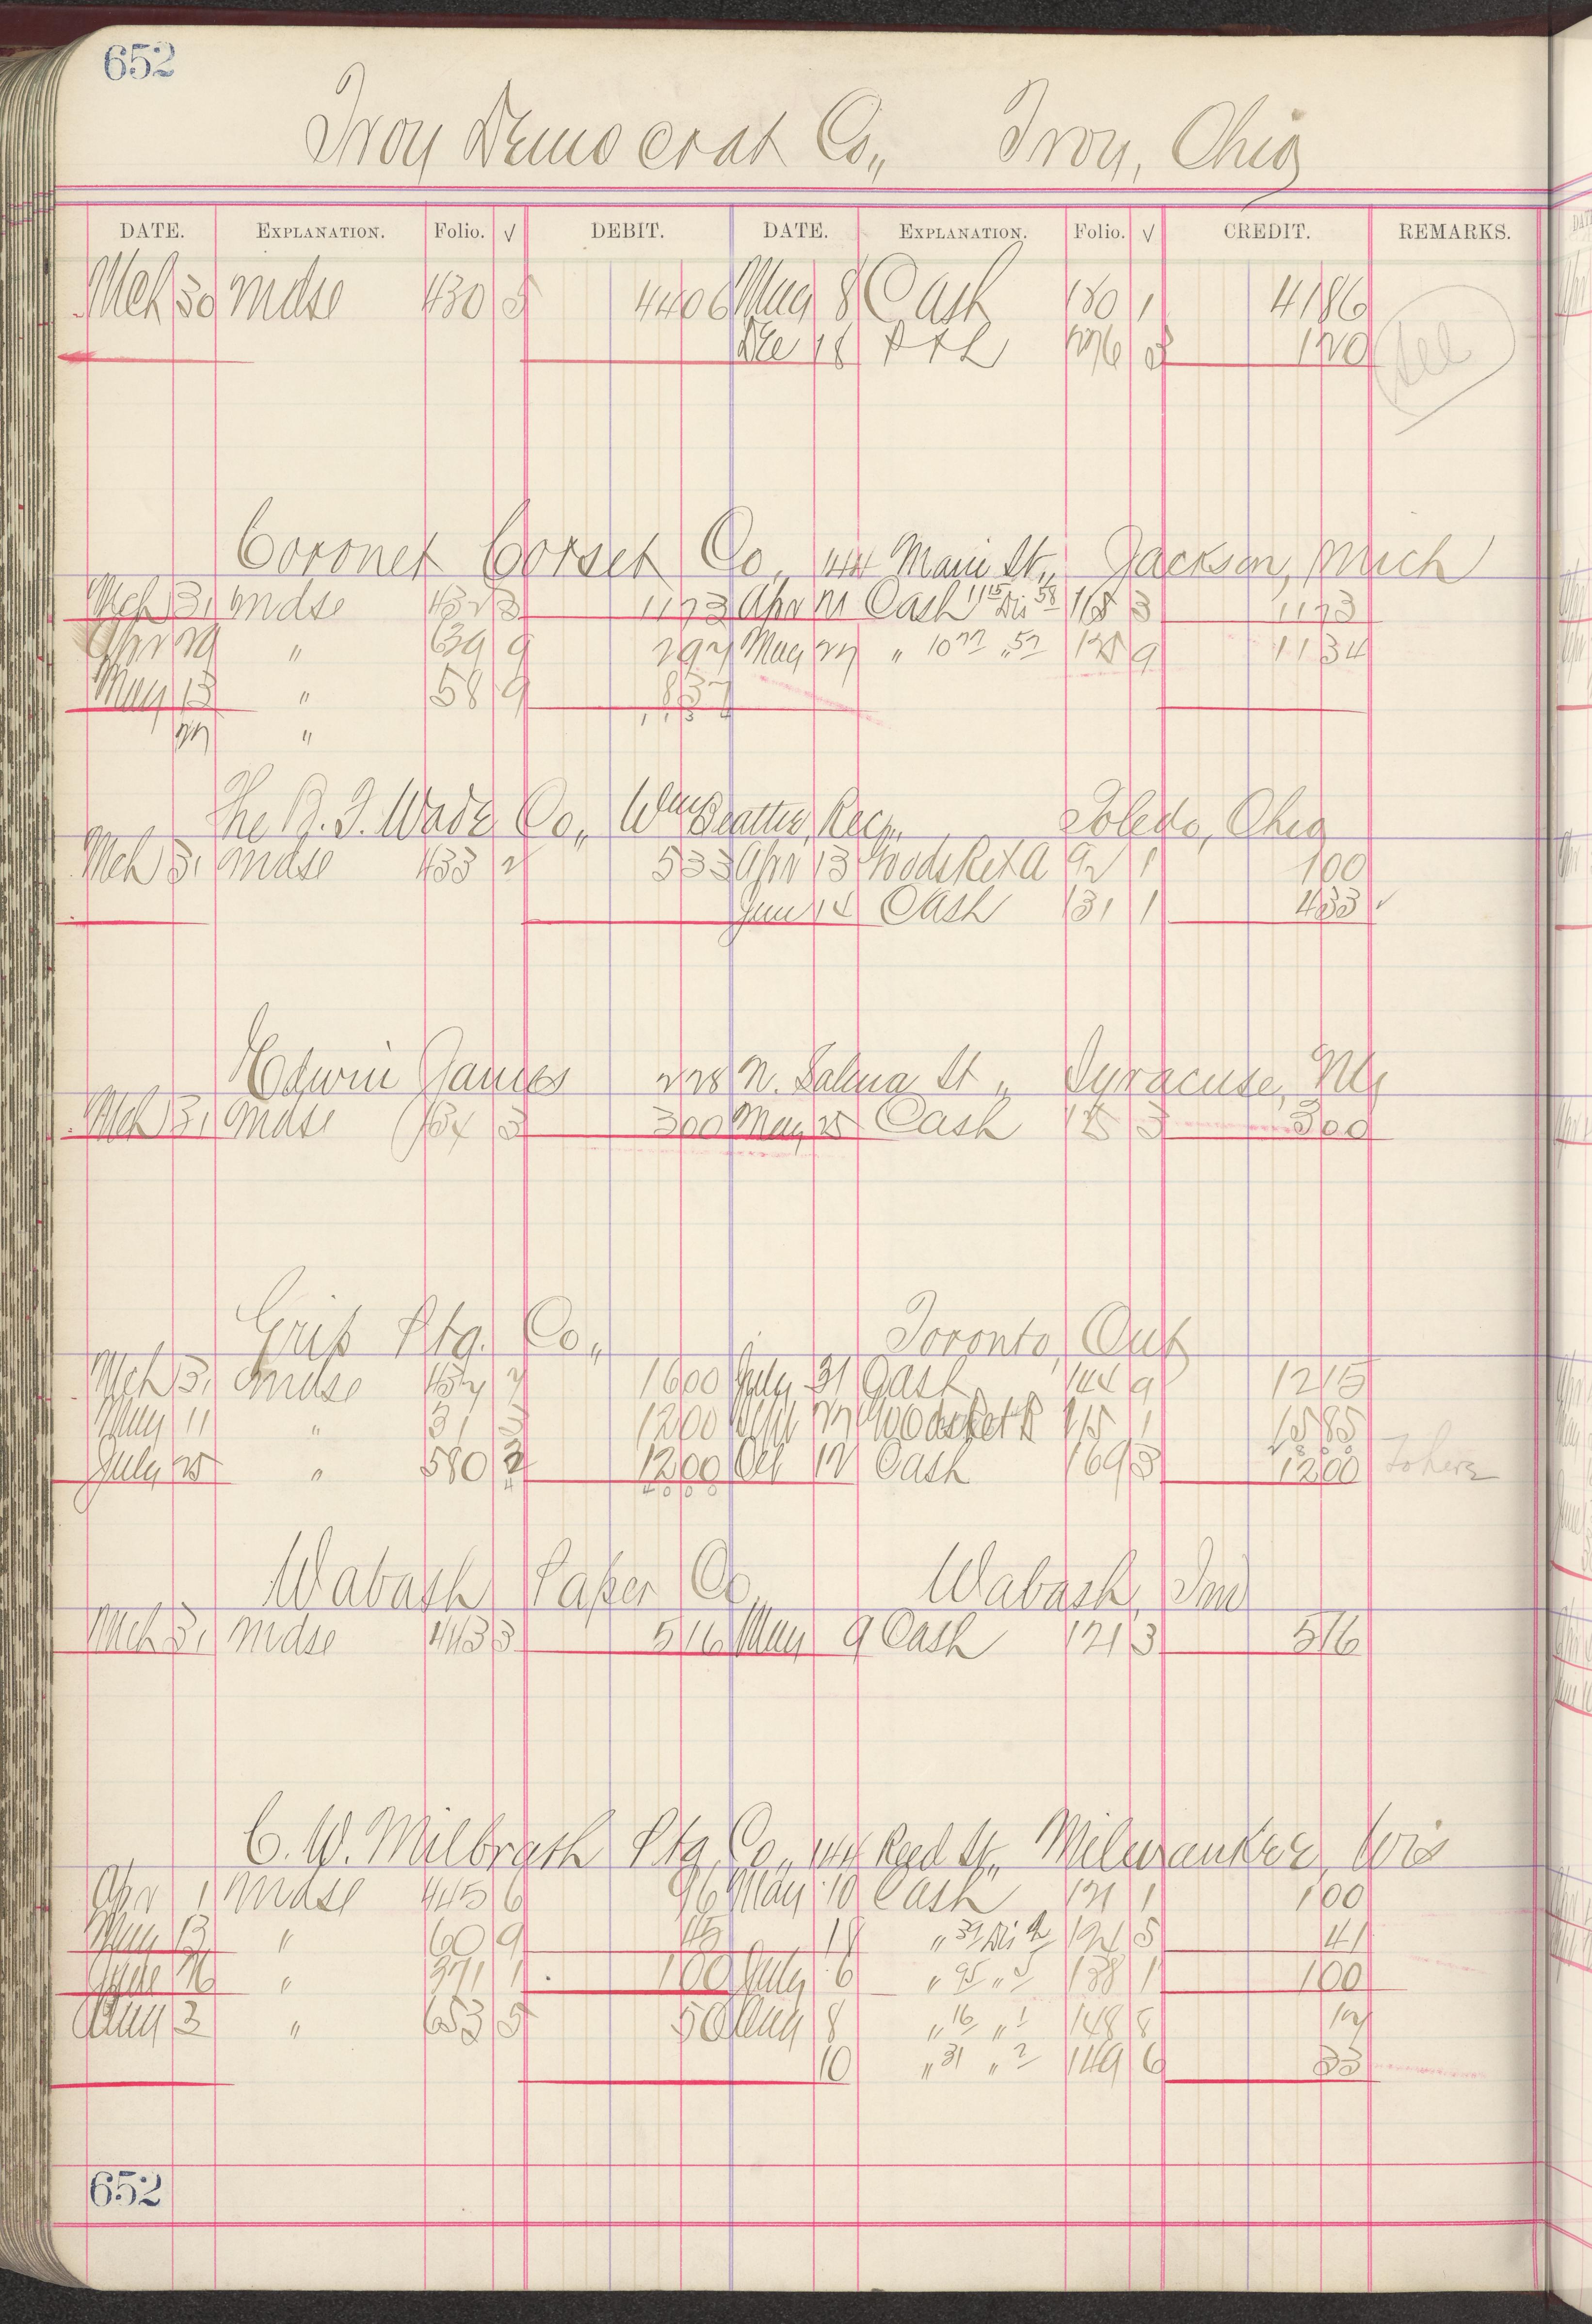 652
Troy Democrat Co., Troy, Ohio
DATE. EXPLANATION. Folio. √ DEBIT. DATE. EXPLANATION. Folio. √ CREDIT. REMARKS.
Mch 30 Mdse 430 5 4406 May 8 Cash 180 1 4186
Dec 18 P & L 3 120
Coronet Corset Co., 144 Main St., Jackson, Mich
Mch 31 Mdse 432 3 1173 Apr 21 Cash 11 15 Dis 58 118 3 1173
Apr 29 " 639 9 297 May 27 " 10 77 " 57 128 9 1134
May 13 " 58 9 837
27 "
The B. F. Wade Co., Wm Beattie, Recr., Toledo, Ohio
Mch 31 Mdse 433 2 533 Apr 13 Goods Ret A 92 1 100
Jun 14 Cash 131 1 433 √
Edwin James 228 N. Salina St., Syracuse, NY
Mch 31 Mdse 3 300 May 25 Cash 3 300
Grip Ptg. Co., Toronto, Ont
Mch 31 Mdse 437 7 1600 July 31 Cash 144 9 1215
May 11 " 31 3 1200 Sept 27 Goods Ret 115 1 1585
July 25 " 580 2 1200 Oct 12 Cash 169 3 1200 To here
4000
Wabash Paper Co Wabash, Ind
Mch 31 Mdse 443 3 516 May 9 Cash 121 3 516
C. W. Milbrath Ptg Co., 144 Reed St., Milwaukee, Wis
Apr 1 Mdse 445 6 96 May 10 Cash 121 1 100
May 13 " 60 9 45 18 " 39 Dis 2 124 5 41
June 16 " 371 1 100 July 6 " 95 " 5 138 1 100
Aug 3 " 653 5 50 Aug 8 " 16 " 1 148 8 17
10 " 31 " 2 149 6 33
652